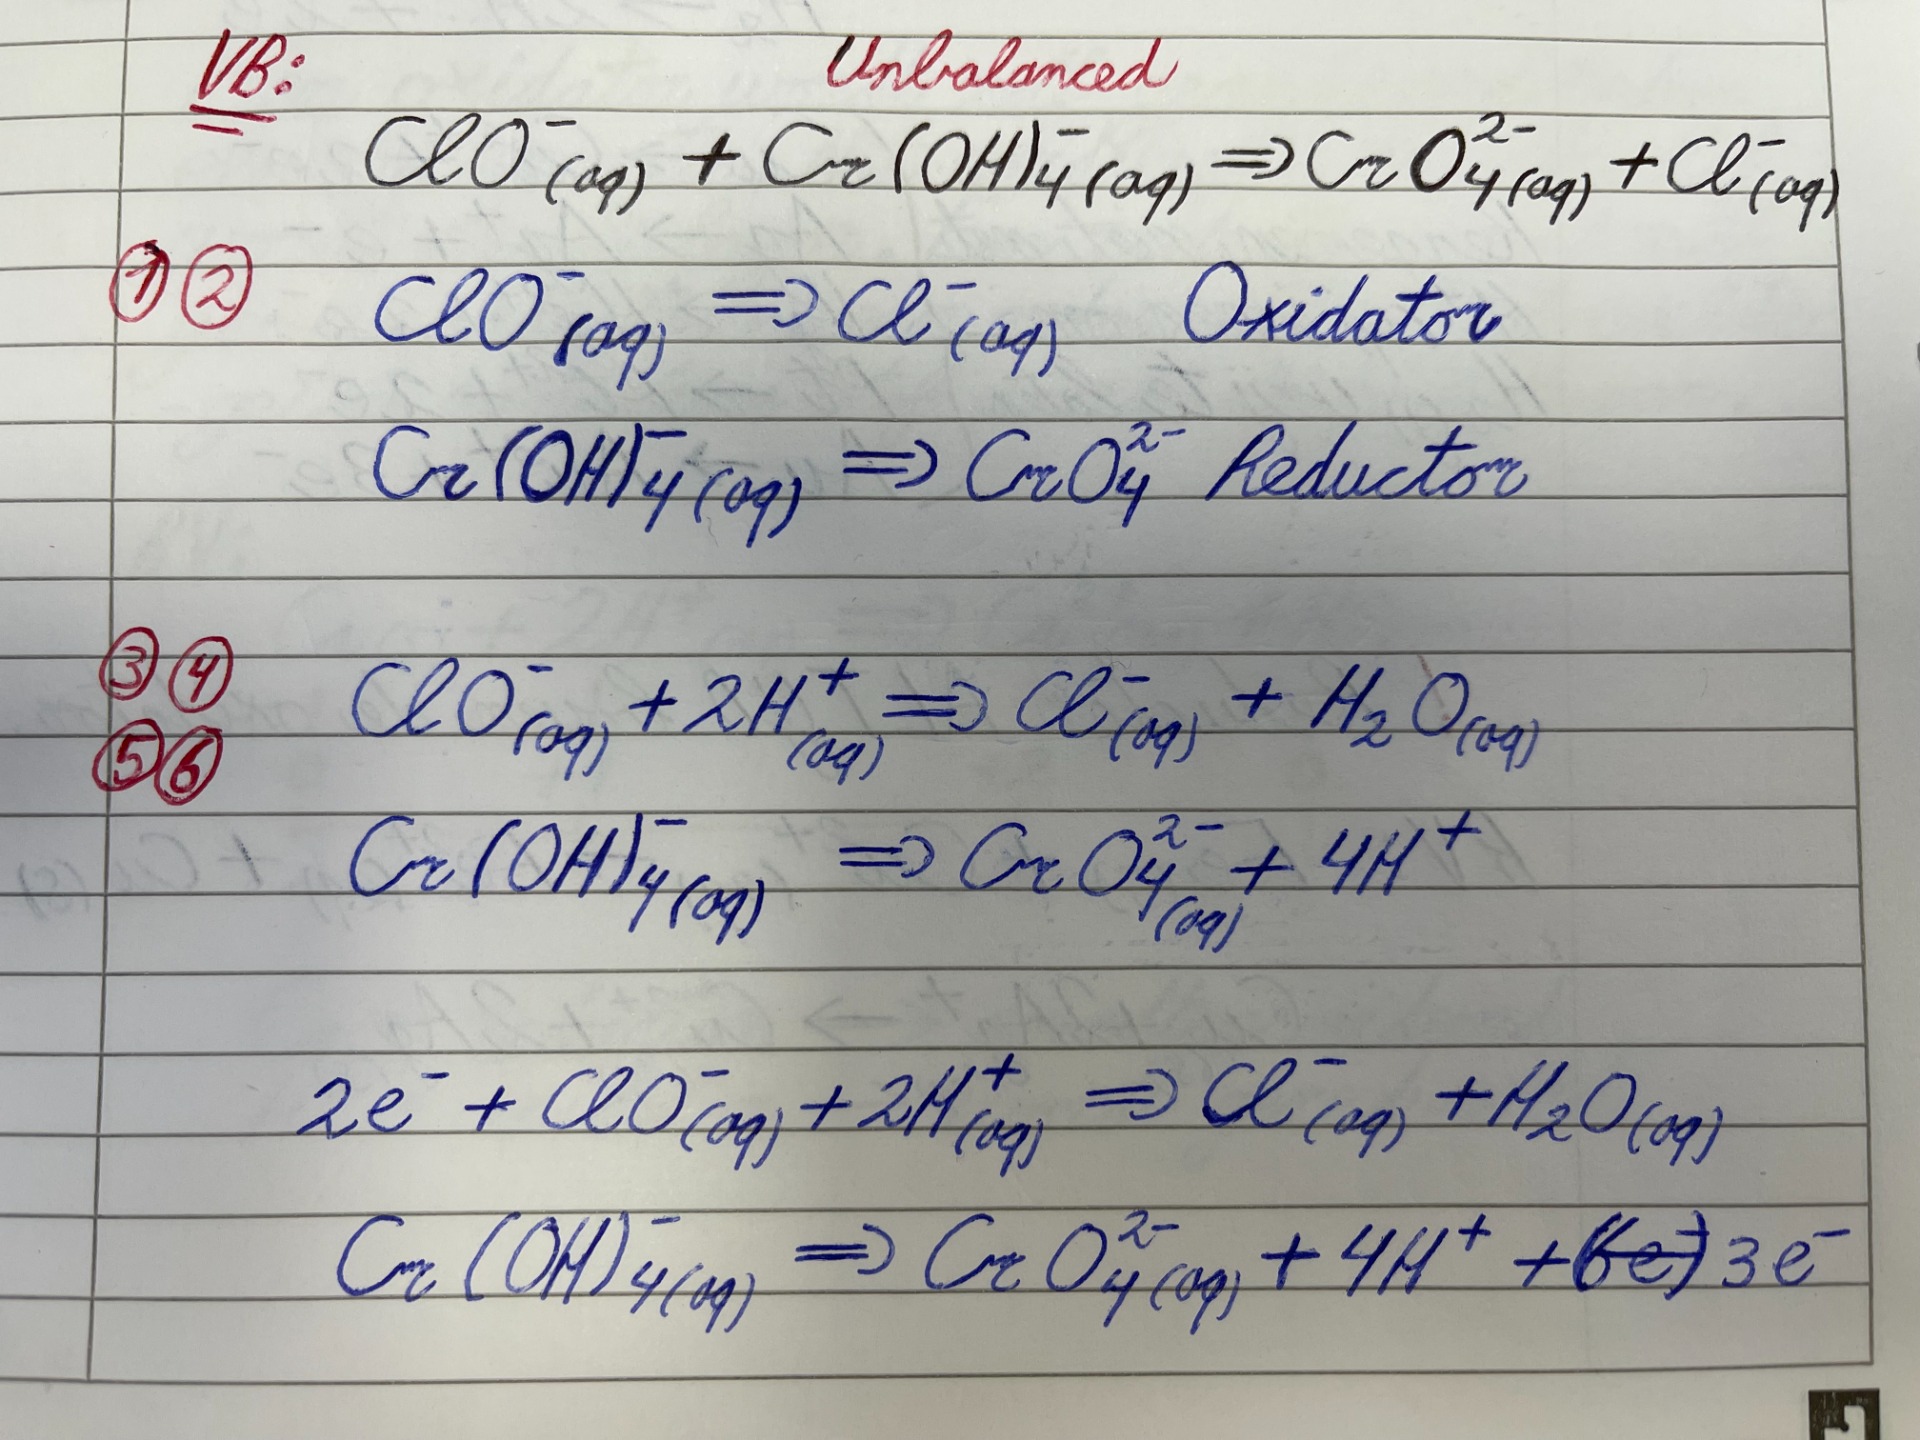 VB: Unbalanced
ClO⁻(aq) + Cr(OH)₄⁻(aq) ⇒ CrO₄²⁻(aq) + Cl⁻(aq)
① ② ClO⁻(aq) ⇒ Cl⁻(aq) Oxidator
Cr(OH)₄⁻(aq) ⇒ CrO₄²⁻ Reductor
③ ④ ClO⁻(aq) + 2H⁺(aq) ⇒ Cl⁻(aq) + H₂O(aq)
⑤ ⑥
Cr(OH)₄⁻(aq) ⇒ CrO₄²⁻(aq) + 4H⁺
2e⁻ + ClO⁻(aq) + 2H⁺(aq) ⇒ Cl⁻(aq) + H₂O(aq)
Cr(OH)₄⁻(aq) ⇒ CrO₄²⁻(aq) + 4H⁺ + 3e⁻